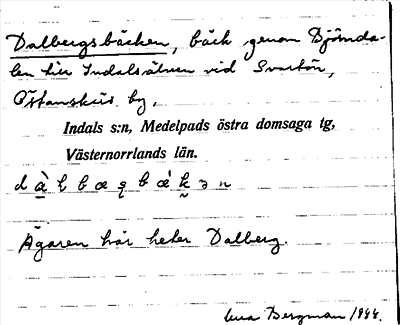 Dalbergsbäcken, bäck genom Djömda-
len till Indalsälven vid Svartön,
Östanskär by,
Indals s:n, Medelpads östra domsaga tg,
Västernorrlands län.
Ägaren här heter Dalberg.
Bergman 1944.